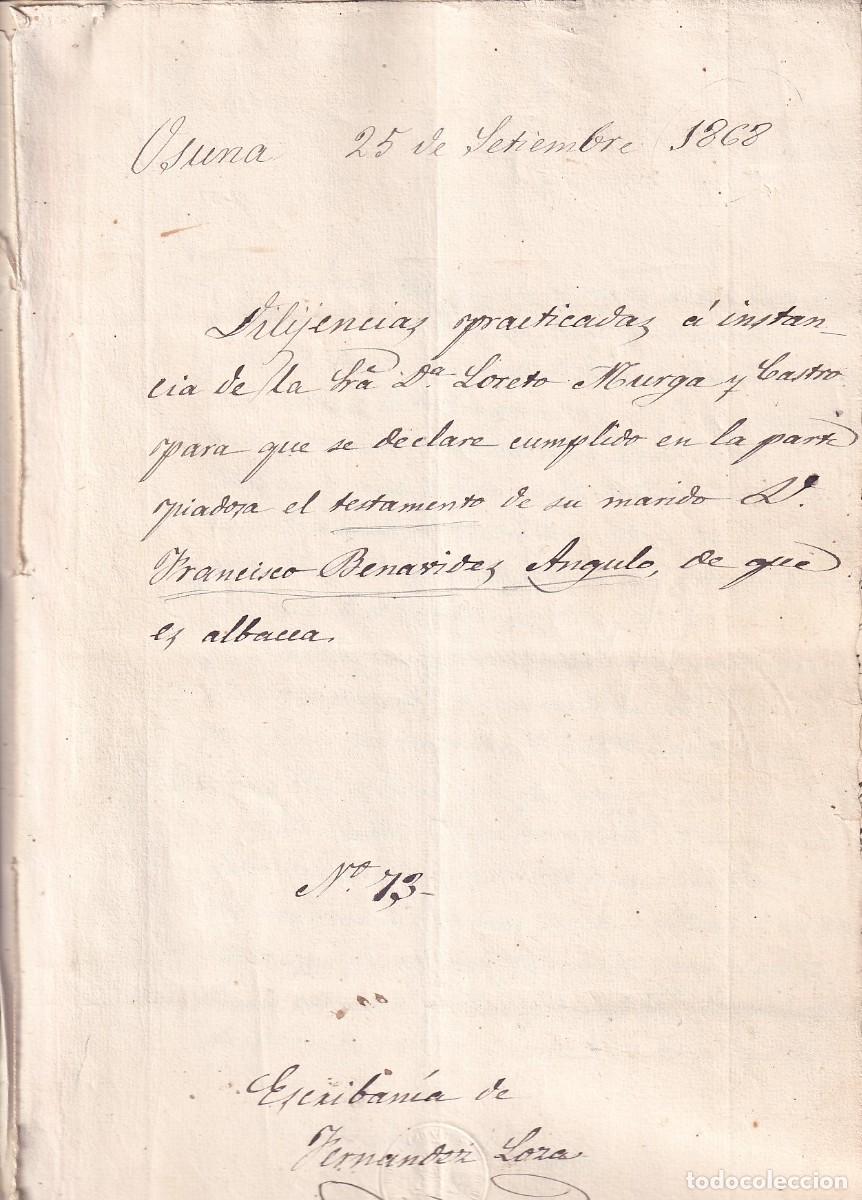 Osuna 25 de Setiembre 1868
Dilijencias practicadas á instan-
cia de la Sra. Da. Loreto Murga y Castro
para que se declare cumplido en la parte
piadosa el testamento de su marido D.
Francisco Benavides Angulo, de que
es albacea.
No. 73-
Escribanía de
Fernandez Loza
todocoleccion